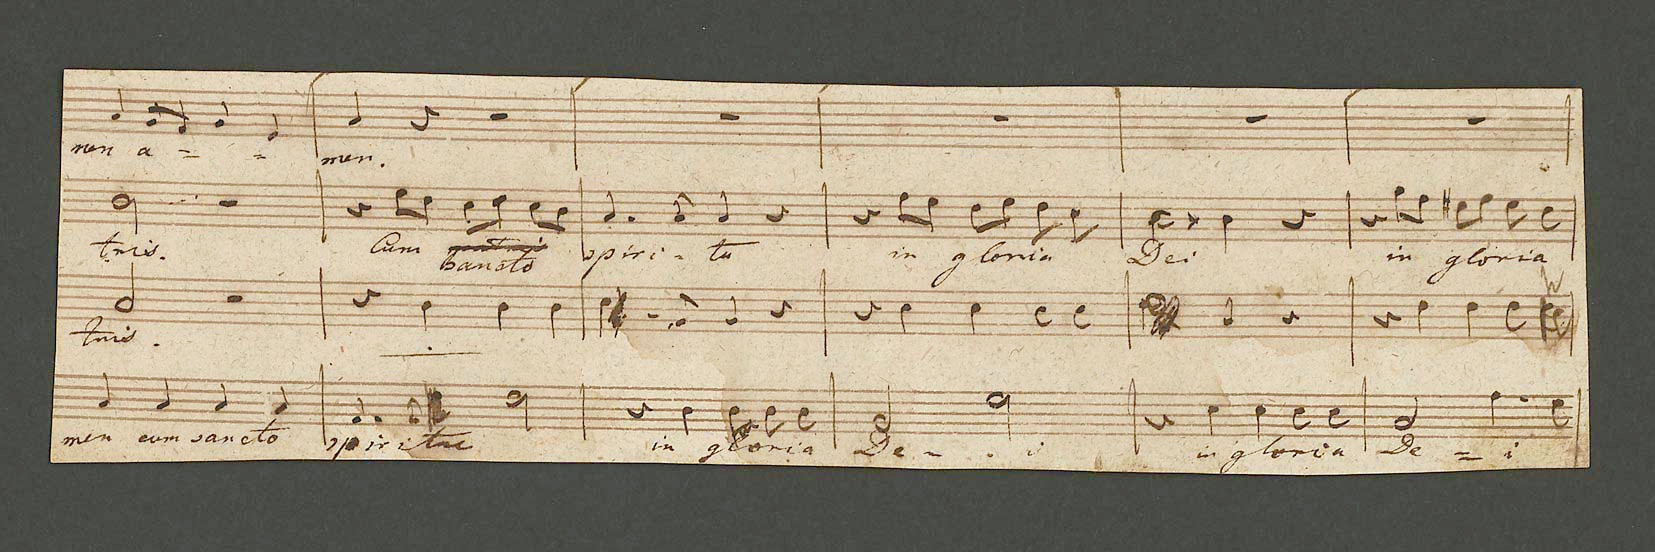 men a - - men.
tris. Cum sancto spiri - tu in gloria Dei in gloria
tris.
men cum sancto spiritu in gloria De - - i in gloria De - i